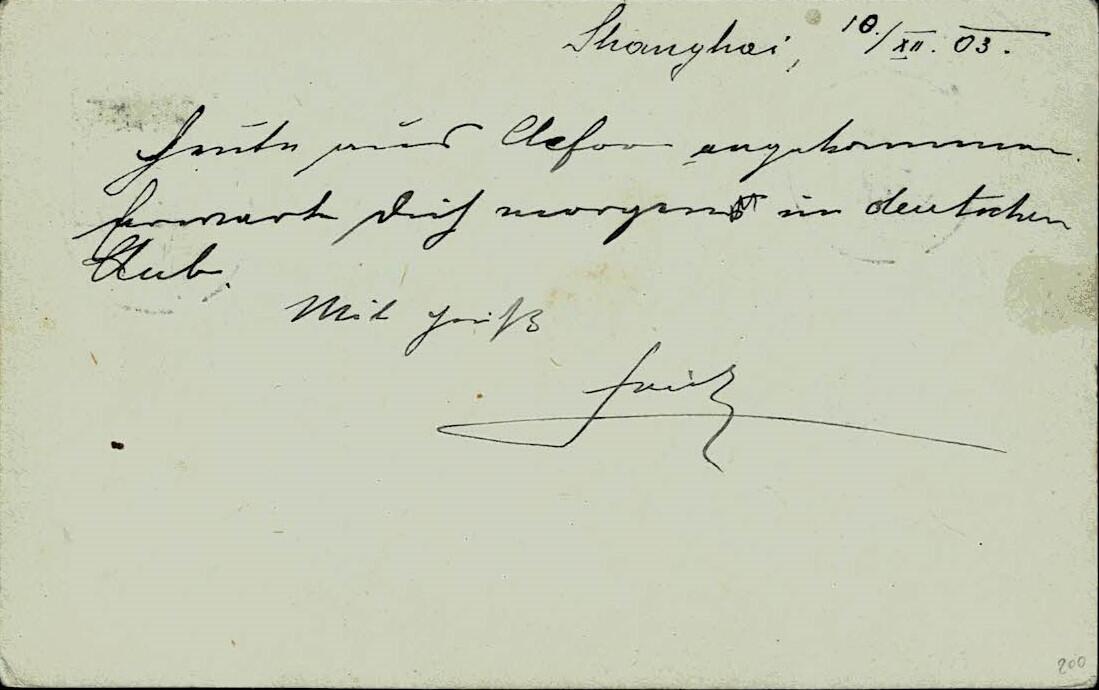 Shanghai, 10./XII. 03.
Heute aus Chefoo angekommen.
Erwarte Dich morgen in deutschen
Club.
Mit Gruß
Fritz
200